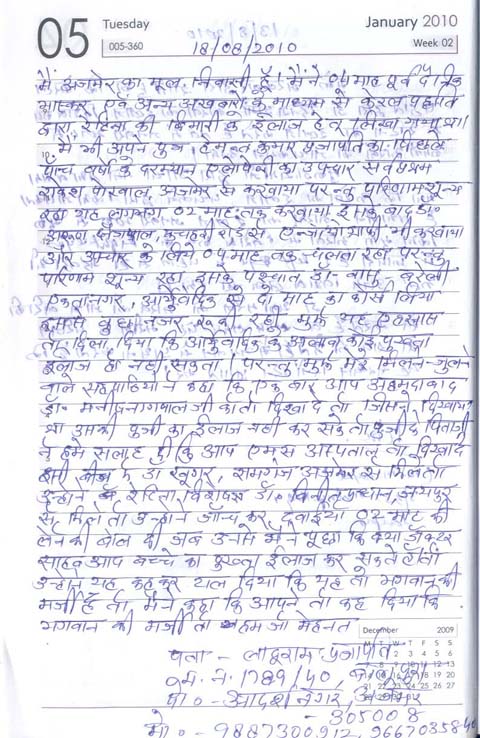 05
Tuesday
005-360
January 2010
Week 02
18/08/2010
मैं अजमेर का मूल निवासी हूँ। मैंने 04 माह पूर्व दैनिक
भास्कर एवं अन्य अखबारों के माध्यम से केरल पद्धति
द्वारा रेटिना की बिमारी के ईलाज हेतू लिखा गया था।
मैं भी अपने पुत्र हेमन्त कुमार प्रजापति का पिछले
पाँच वर्षों के दरम्यान एलोपैथी का उपचार सर्वप्रथम
पोरवाल, अजमेर से करवाया परन्तु परिणाम शून्य
रहा यह लगभग 02 माह तक करवाया इसके बाद डा०
कचहरी रोड से एन्जियोग्राफी भी करवाया
और उपचार के लिये 04 माह तक चलता रहा परन्तु
परिणाम शून्य रहा इसके पश्चात डा० वासु- बरेली
एकतानगर, आर्युवेदिक से दो माह का कोर्स लिया
इससे कुछ नजर रूकी रही मुझे यह एहसास
तो दिला दिया कि आर्युवेदिक के अलावा कोई पुख्ता
ईलाज हो नहीं सकता। परन्तु मुझे मेरे मिलने-जुलने
वाले सहपाठियों ने कहा कि एक बार आप अहमदाबाद
डॉ० नागपाल जी को तो दिखावे तो जिसको दिखाया
था उसकी पुत्री का ईलाज नही कर सके तो पिताजी
ने हमे सलाह दी कि आप एम्स अस्पताल को दिखावे
इसी बीच डा खूंगर, रामगंज अजमेर से मिले तो
उन्होंने रेटिना विशेषज्ञ डॉ० विनीत प्रधान, जयपुर
से मिले तो उन्होंने जाँच कर दवाईया 02 माह की
लेने को बोल दी जब उनसे मैंने पूछा कि क्या डॉक्टर
साहब आप बच्चे का पुख्ता ईलाज कर सकते हो तो
उन्होंने यह कह कर टाल दिया कि यह तो भगवान की
मर्जी है तो मैंने कहा कि आपने तो कह दिया कि
भगवान की मर्जी तो हम जो मेहनत
December 2009
पता - लादूराम प्रजापति
म. नं. 1789/40,
पो० - आदर्श नगर, अजमेर
- 305008
मो० - 9887300912, 9667035840